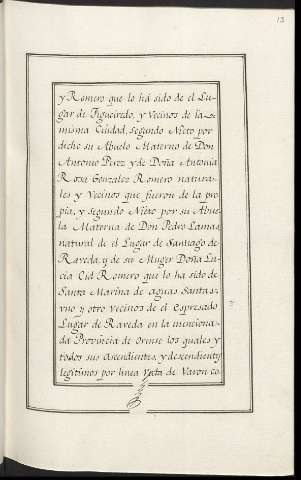 13
y Romero que lo há sido de el Lu-
gar de Figueiredo, y Vecinos de la
misma Ciudad, segundo Nieto por
dicho su Abuelo Materno de Don
Antonio Perez y de Doña Antonia
Rosa Gonzalez Romero natura-
les y Vecinos que fueron de la pro
pia, y segundo Nieto por su Abue
la Materna de Don Pedro Lamas
natural de el Lugar de Santiago de
Raveda, y de su Muger Doña Lu-
cia Cid Romero que lo há sido de
Santa Marina de aguas Santas,
vno y otro vecinos de el Espresado
Lugar de Raveda en la menciona-
da Provincia de Orense los quales y
todos sus Ascendientes, y descendientes
legitimos por linea recta de Varon co